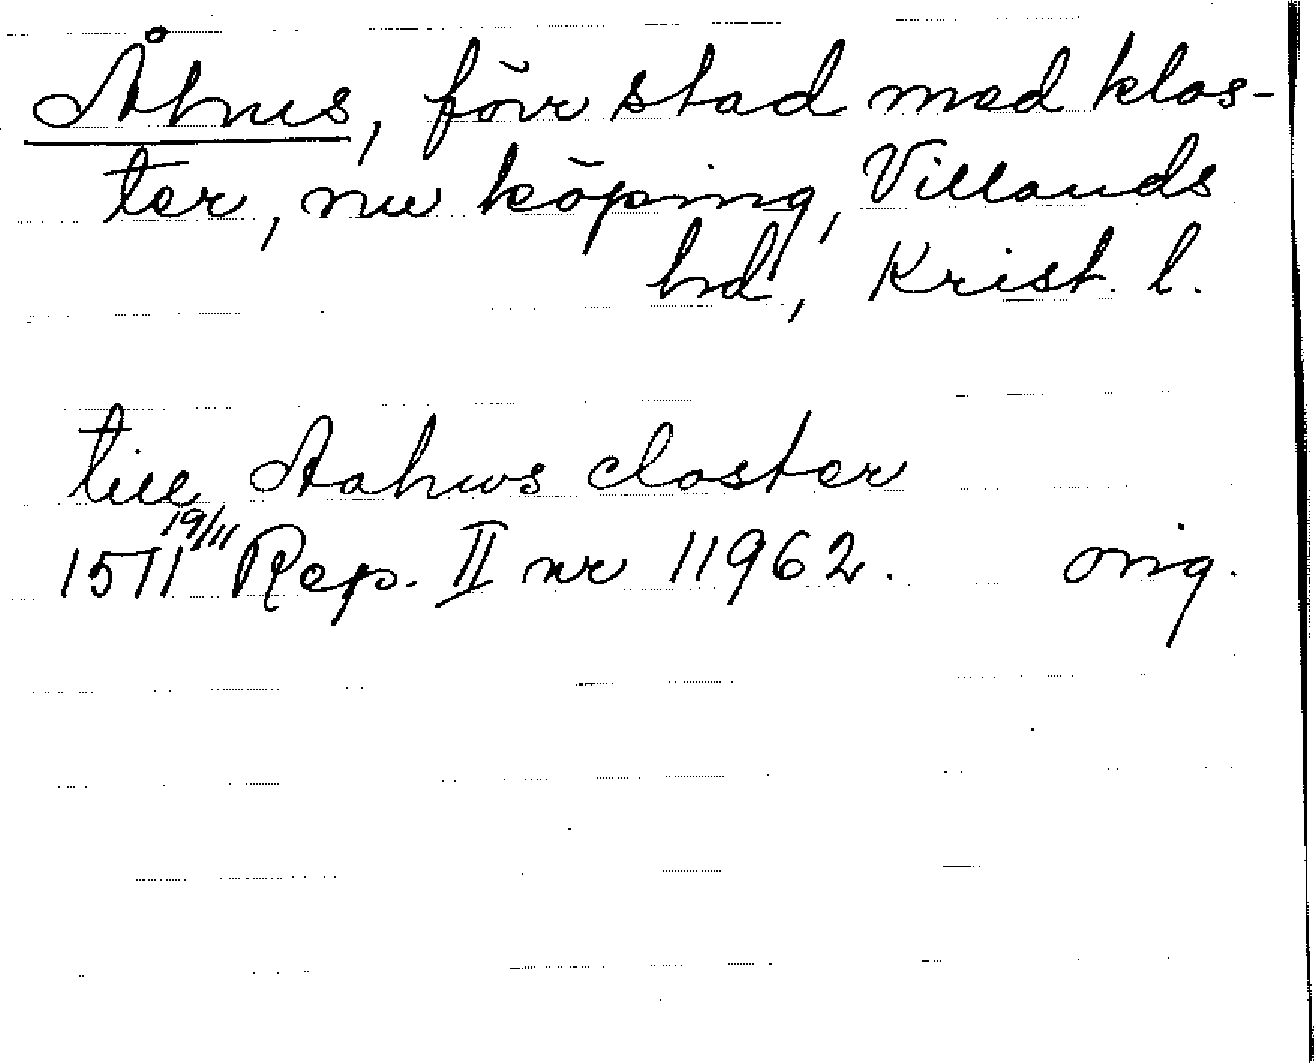 Åhus, förr stad med klos-
ter, nu köping, Villands
hd, Krist. l.
till Aahws closter
1511 19/11 Rep. II nr 11962. orig.